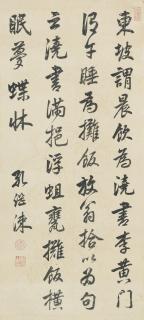 東坡謂晨飲為澆書李黃門
謂午睡為攤飯放翁拾以為句
云澆書滿挹浮蛆甕攤飯橫
眠夢蝶牀
孔繼涑